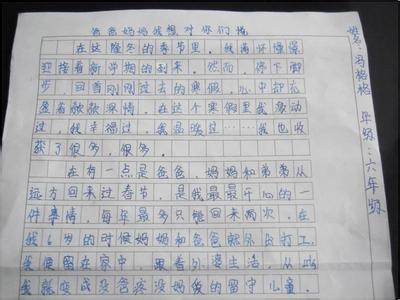 爸爸妈妈我想对你们说
在这隆冬的季节里，我满怀憧憬
迎接着新学期的到来，然而，停下脚
步，回首刚刚过去的寒假，心中却充
盈着款款深情。在这个寒假里我感动
过，我幸福过，我品尝过……我也收
获了很多，很多。
在有一点是爸爸，妈妈和弟弟从
远方回来过春节，是我最最开心的一
件事情，每年最多只能回来两次，在
我6岁的时候妈妈和爸爸就外出打工，
我便留在家中，跟着外婆生活，从此
我就变成没爸疼没妈爱的留守儿童。
格格 年级：六年级